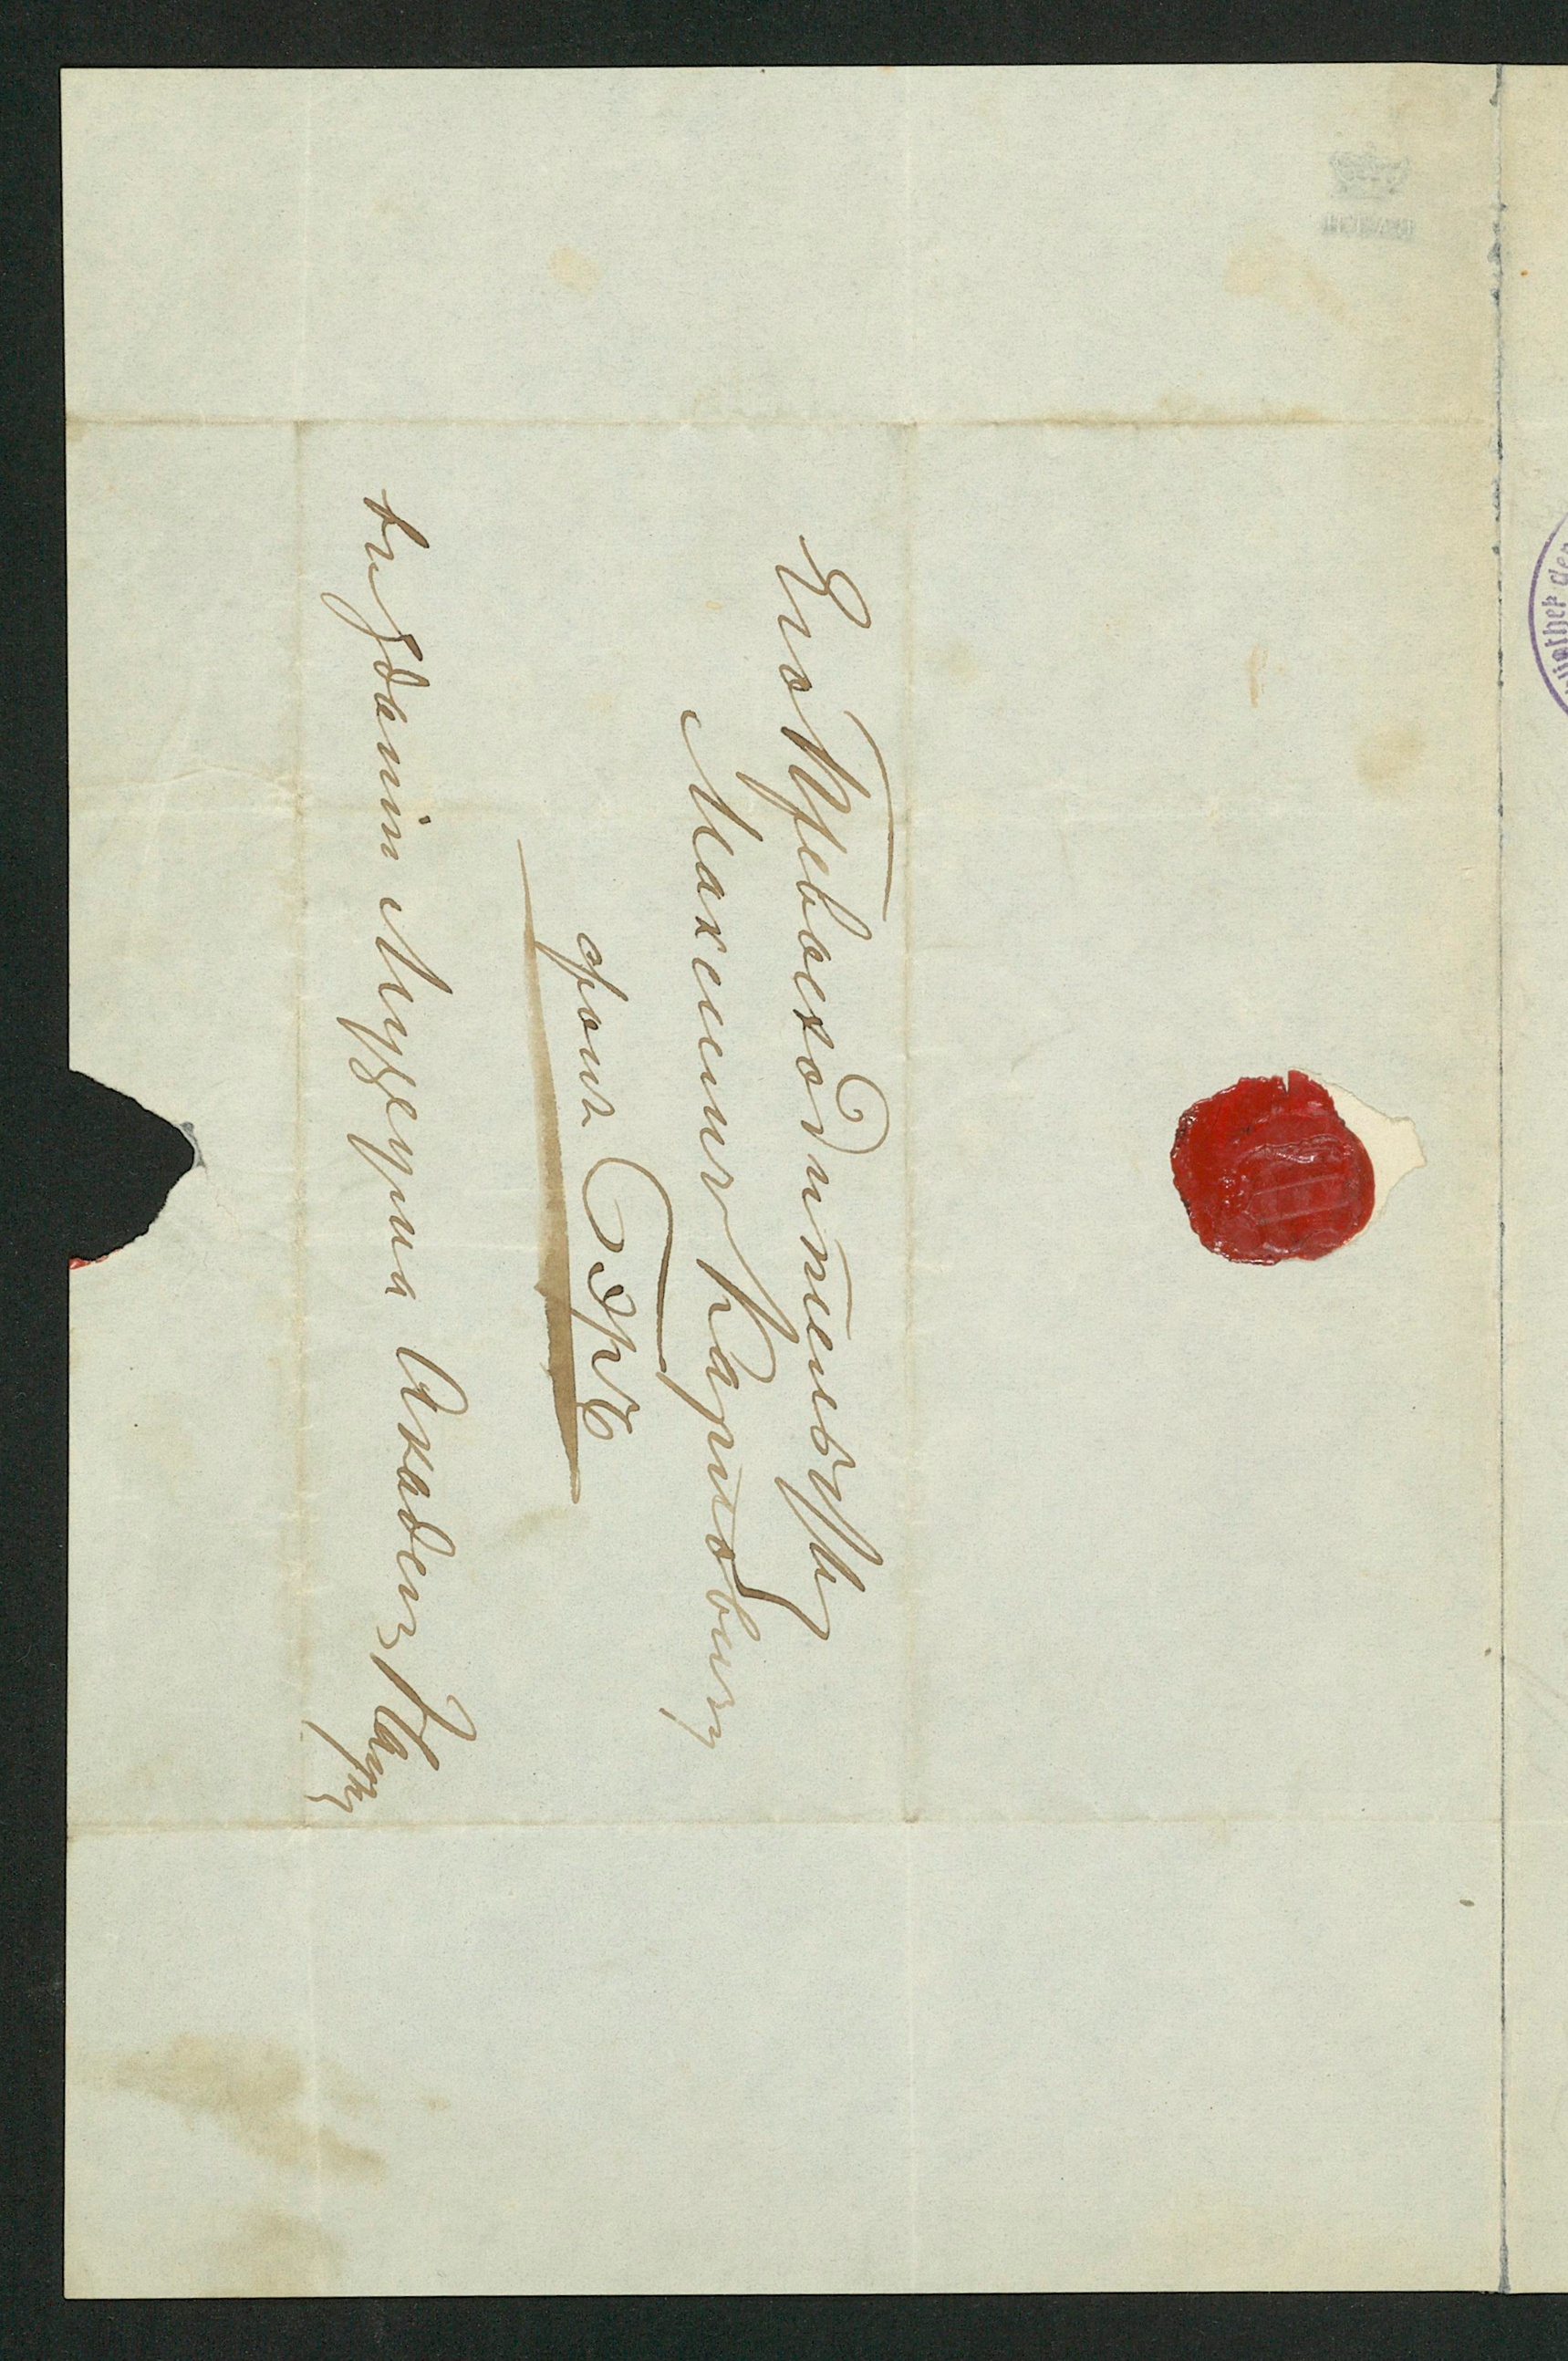 Его Превосходительству
Максиму Карловичу
фонъ Бэръ
въ зданіи Музеума Академіи Наукъ
iothek der